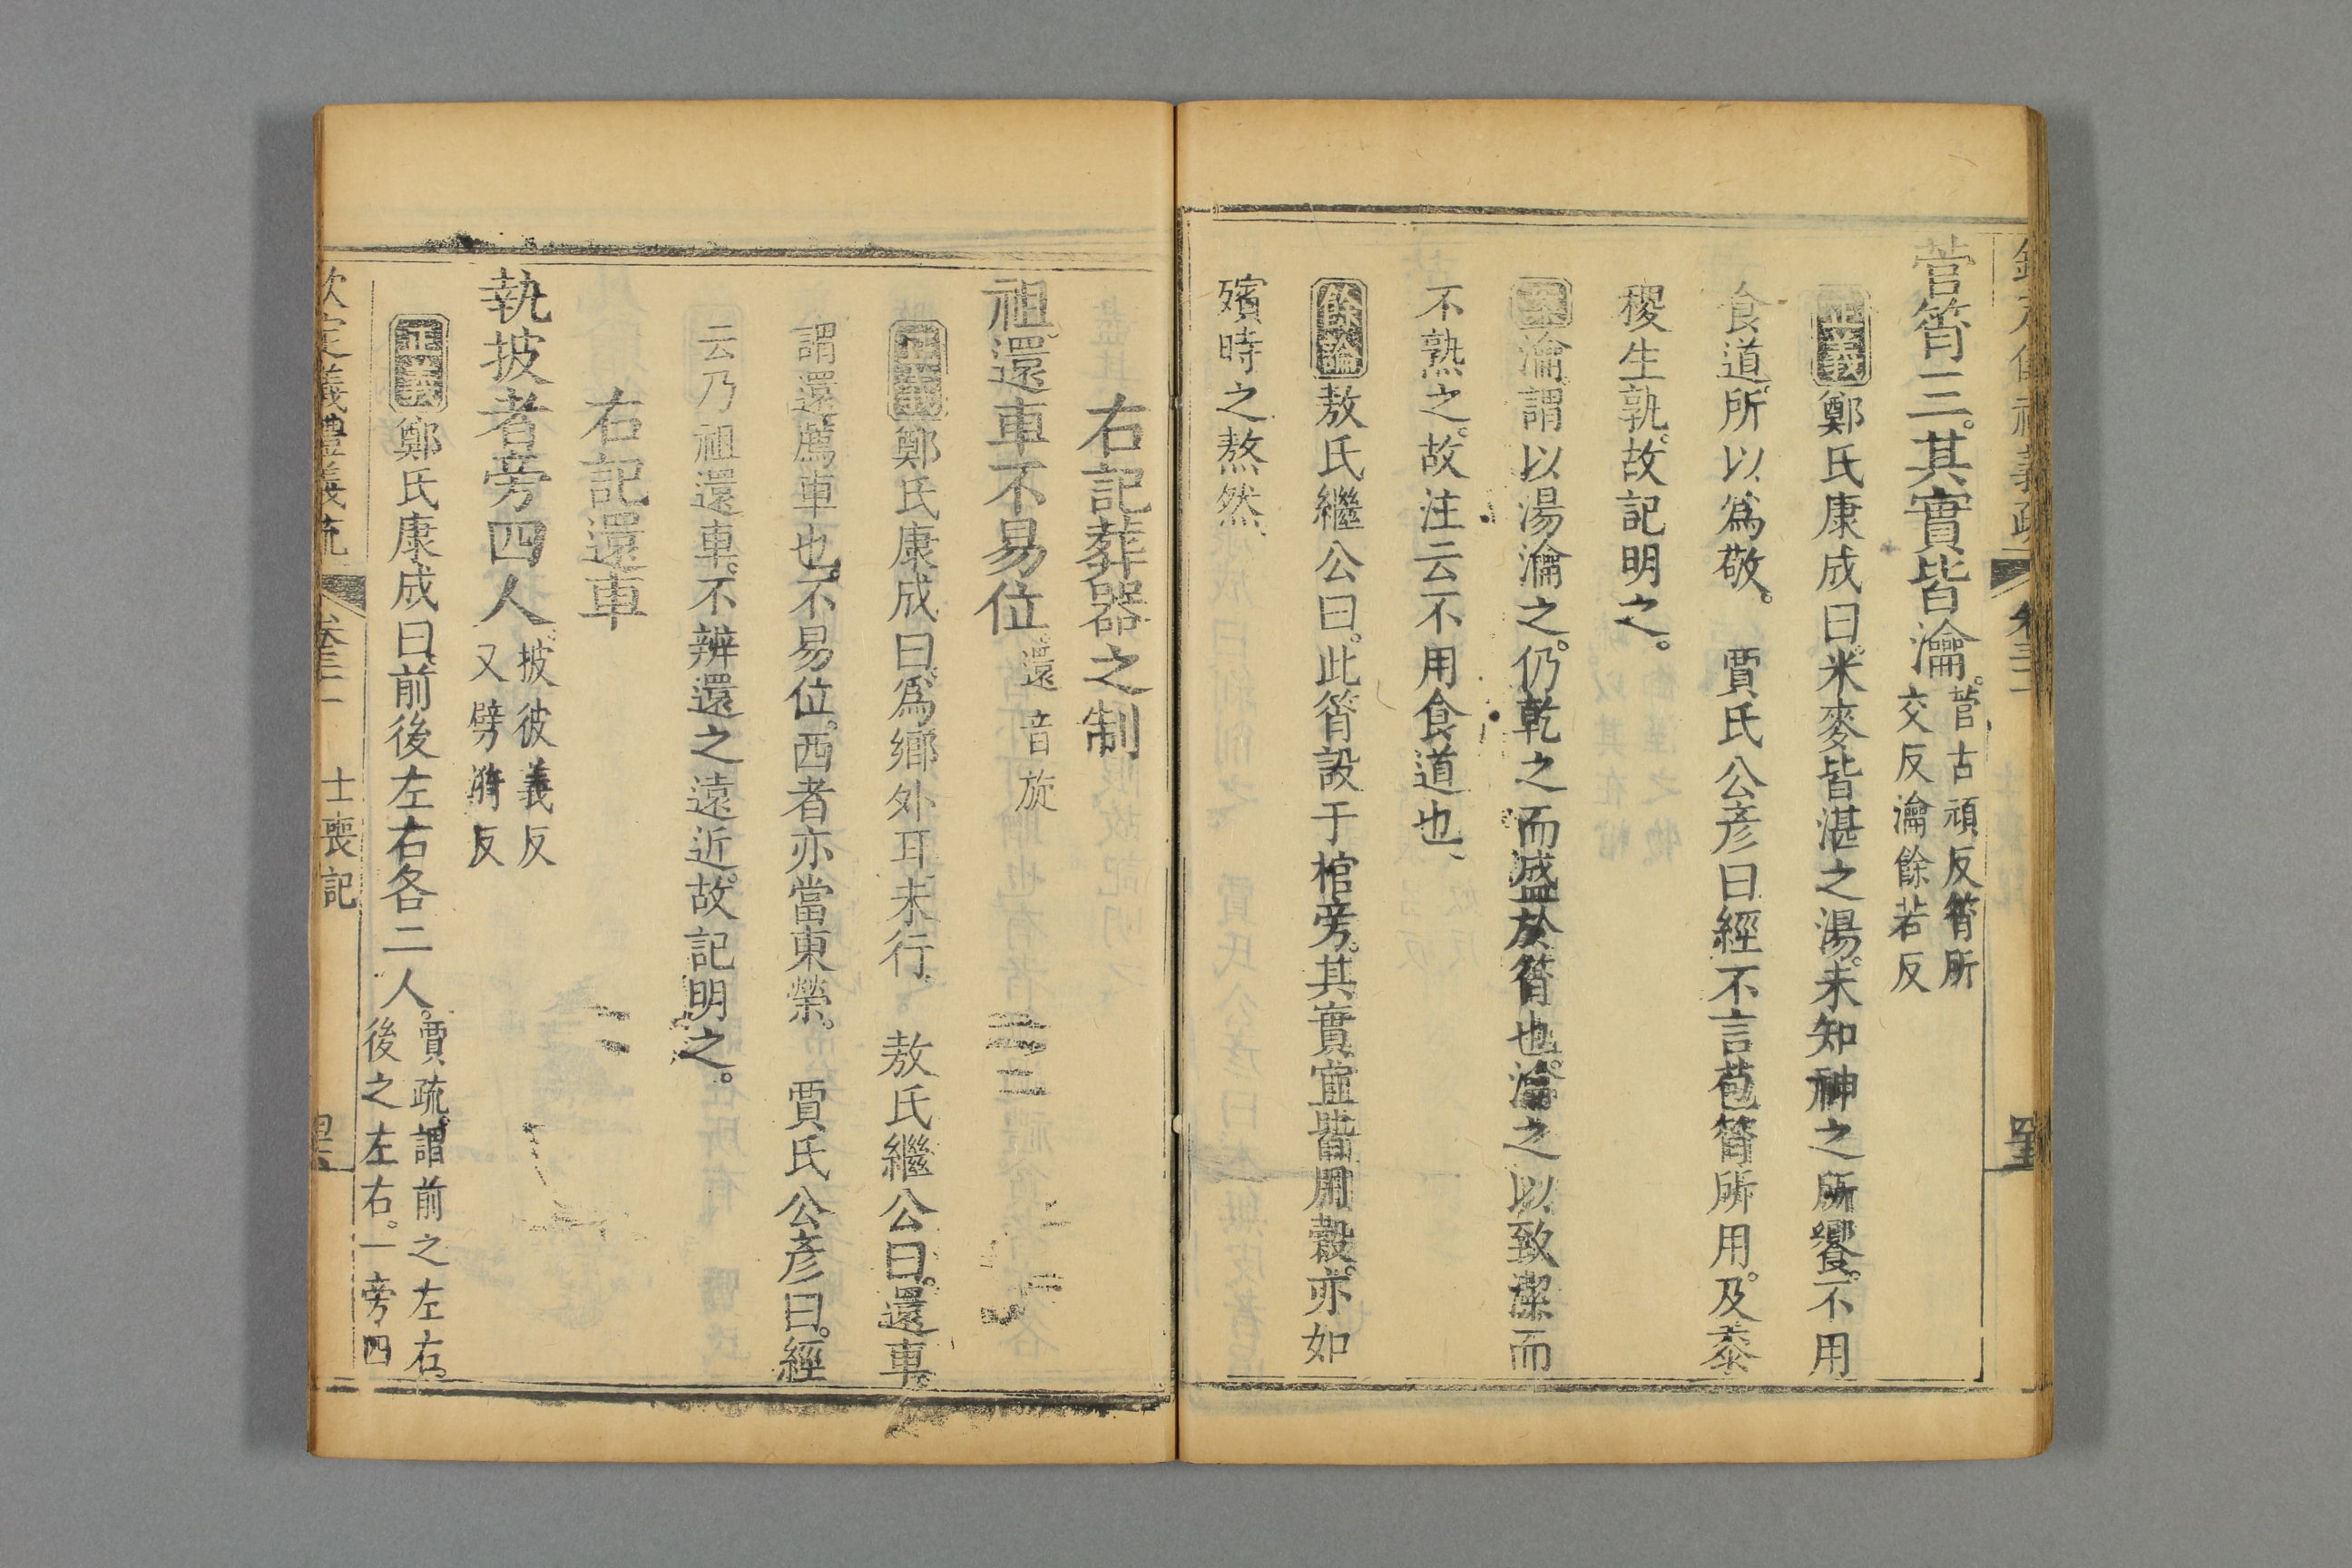 欽定儀禮義疏 卷三十一
菅筲三。其實皆瀹。菅古頑反筲所
交反瀹餘若反
正義鄭氏康成曰。米麥皆湛之湯。未知神之所饗。不用
食道。所以爲敬。 賈氏公彥曰經不言苞筲所用。及黍
稷生孰。故記明之。
案瀹謂以湯瀹之。仍乾之而盛於筲也。瀹之以致潔而
不熟之。故注云不用食道也
餘論敖氏繼公曰。此筲設于棺旁。其實宜皆用穀。亦如
殯時之熬然
右記葬器之制
祖。還車不易位。還音旋
正義鄭氏康成曰。爲鄉外耳。未行。 敖氏繼公曰。還車。
謂還薦車也。不易位。西者亦當東榮。 賈氏公彥曰。經
云乃祖還車。不辨還之遠近。故記明之。
右記還車
執披者旁四人。披彼義反
又劈猗反
正義鄭氏康成曰。前後左右各二人。賈疏。謂前之左右。
後之左右。一旁四
欽定義禮義疏 卷三十一 士喪記